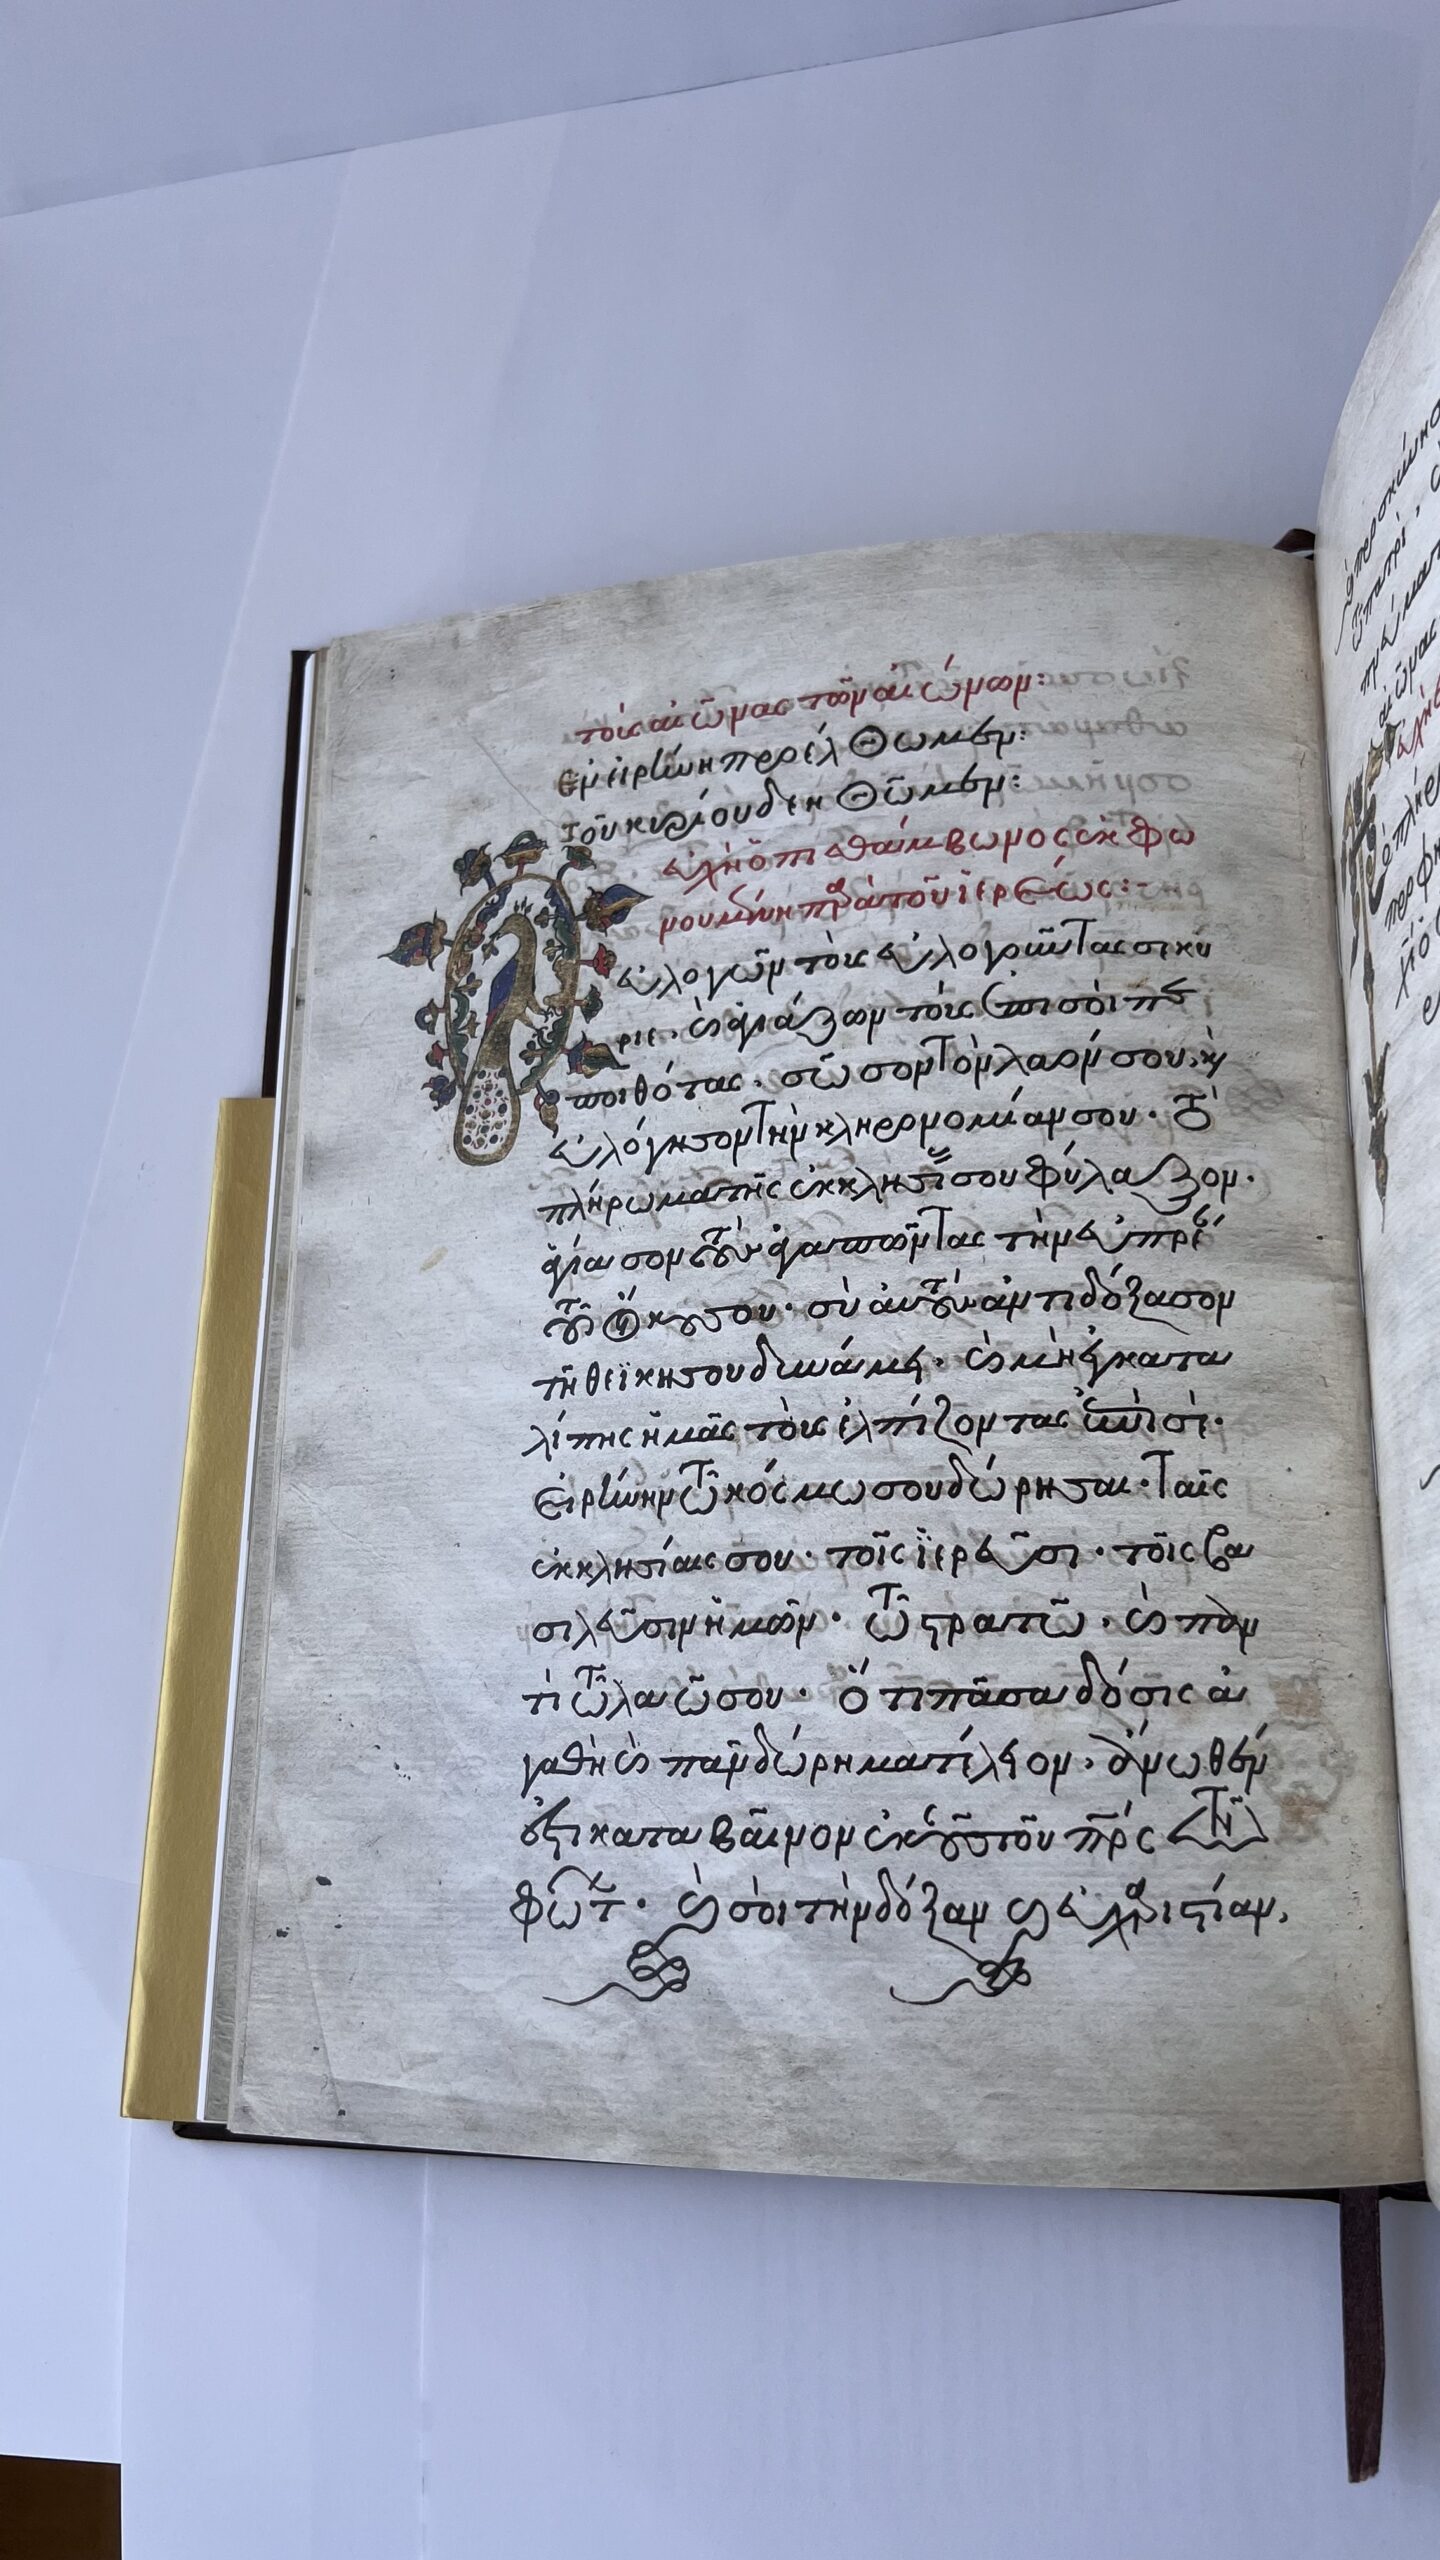 τοὺς αἰῶνας τῶν αἰώνων:
Ἐν εἰρήνη προέλθωμεν:
Τοῦ κυρίου δεηθῶμεν:
εὐχὴ ὀπισθάμβωνος ἐκφω
νουμένη πρὰ τοῦ ἱερέως:-
εὐλογῶν τοὺς εὐλογοῦντας σε κύ
ριε. καὶ ἁγιάζων τοὺς ἐπι σοὶ πε
ποιθότας. σῶσον τὸν λαόν σου, καὶ
εὐλόγησον τὴν κληρονομίαν σου. Τὸ
πλήρωμα τῆς ἐκκλησίας σου φύλαξον.
ἁγίασον τοὺς ἀγαπῶντας τὴν εὐπρέ
τοῦ οἴκου σου. σὺ αὐτοὺς ἀντιδόξασον
τῆ θεϊκῆ σου δυνάμει. καὶ μὴ ἐγκατα
λίπης ἡμᾶς τοὺς ἐλπίζοντας ἐπὶ σὲ.
Εἰρήνην τῶ κόσμω σου δώρησαι. Ταῖς
ἐκκλησίαις σου. τοῖς ἱερεῦσι. τοῖς βα
σιλεῦσιν ἡμῶν. τῶ στρατῶ. καὶ παν
τὶ τῶ λαῶ σου. Ὅτι πᾶσα δόσις ἀ
γαθὴ καὶ πᾶν δώρημα τέλειον, ἄνωθέν
ἐστι καταβαῖνον ἐκ σοῦ τοῦ πρς τῶν
φώτ. καὶ σοὶ τὴν δόξαν καὶ εὐχαριστίαν,